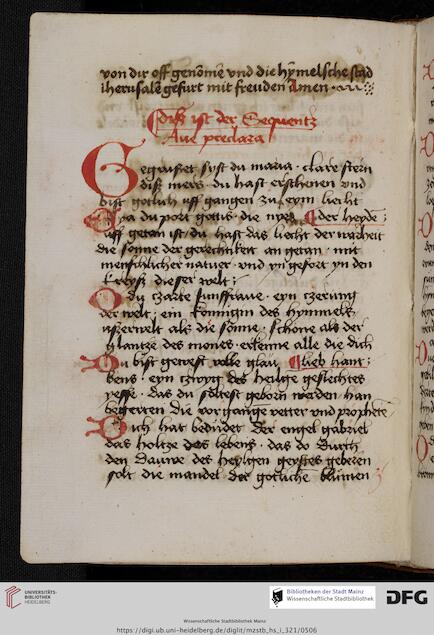 von dir off genōmē vnd die hymelsche stad
iherusalē gefurt mit freuden Amen
Diß ist der Sequentz
Aue preclara
Gegrußet syst du maria · clare stern
diß mers · du hast erschenen vnd
bist gotlich uff gangen zu eym liecht
Eya du port gottis · die nyes der heyde
uff getan ist · du hast das liecht der warheit
die sonne der gerechtikeit an getan · mit
menschlicher natuer · vnd yn gefort yn den
kreyß dieser welt ;
O du zarte junffrauwe · eyn czerung
der welt ; ein konnigin des hymmels
uszerwelt als die sonne · schone als der
glantze des monts · erkenne alle die dich
Du bist gewest volle glau lieb hant ;
bens · eyn zwyg des heilge geslechtes
yesse · das du soltest geborn werden han
begereten die vorgange vetter vnd prophete
Dich hat bedudet der engel gabriel
das holtze des lebens · das do durch
den dauwe des heylgen geystes geberen
solt die mandel der gotliche blumen
UNIVERSITÄTS-
BIBLIOTHEK
HEIDELBERG
Bibliotheken der Stadt Mainz
Wissenschaftliche Stadtbibliothek
DFG
Wissenschaftliche Stadtbibliothek Mainz
https://digi.ub.uni-heidelberg.de/diglit/mzstb_hs_i_321/0506